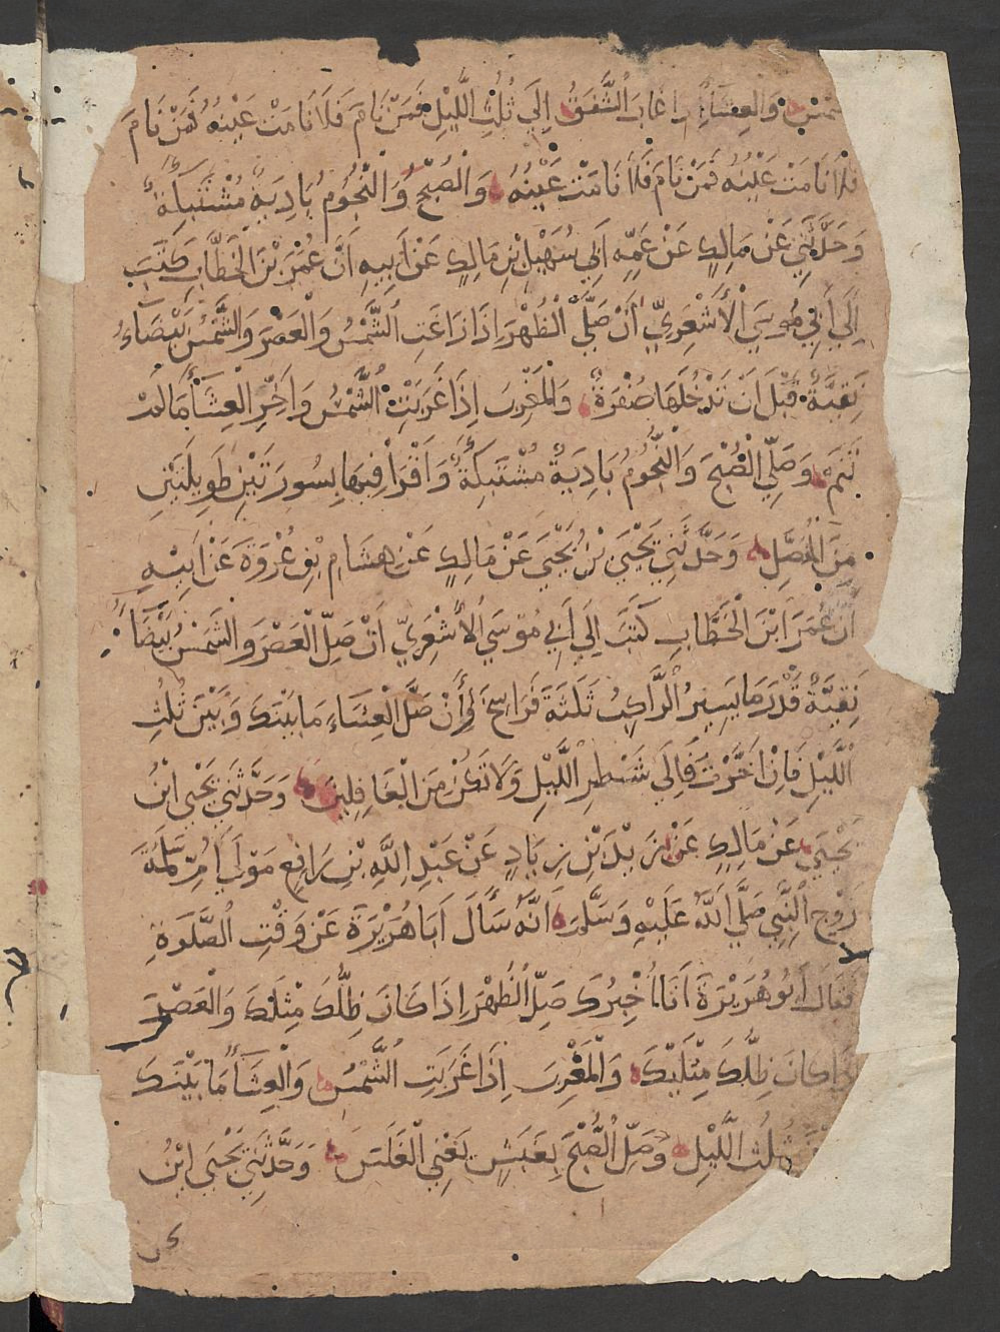 الشمس والعشاء اذا غاب الشفق الي ثلث الليل فمن نام فلا نامت عينه فمن نام
فلا نامت عينه فمن نام فلا نامت عينه والصبح والنجوم بادية مشتبكة
وحدثني عن مالك عن عمه ابي سهيل بن مالك عن ابيه ان عمر بن الخطاب كتب
الي ابي موسي الأشعري أن صل الظهر اذا زاغت الشمس والعصر والشمس بيضاء
نقية قبل ان تدخلها صفرة والمغرب اذا غربت الشمس واخر العشاء ما لم
تنم وصلي الصبح والنجوم بادية مشتبكة واقرأ فيها بسورتين طويلتين
من المفصل وحدثني يحيي بن يحيي عن مالك عن هشام بن عروة عن ابيه
ان عمر ابن الخطاب كتب الي ابي موسي الأشعري ان صل العصر والشمس بيضاء
نقية قدر ما يسير الراكب ثلثة فراسخ وأن صل العشاء ما بينك وبين ثلث
الليل فان اخرت فالي شطر الليل ولا تكن من الغافلين وحدثني يحيي ابن
يحيي عن مالك عن يزيد بن زياد عن عبد الله بن رافع مولي ام سلمة
زوج النبي صلي الله عليه وسلم انه سأل ابا هريرة عن وقت الصلوة
فقال ابو هريرة انا أخبرك صل الظهر اذا كان ظلك مثلك والعصر
اذا كان ظلك مثليك والمغرب اذا غربت الشمس والعشاء ما بينك
ثلث الليل وصل الصبح بغبش يعني الغلس وحدثني يحيي ابن